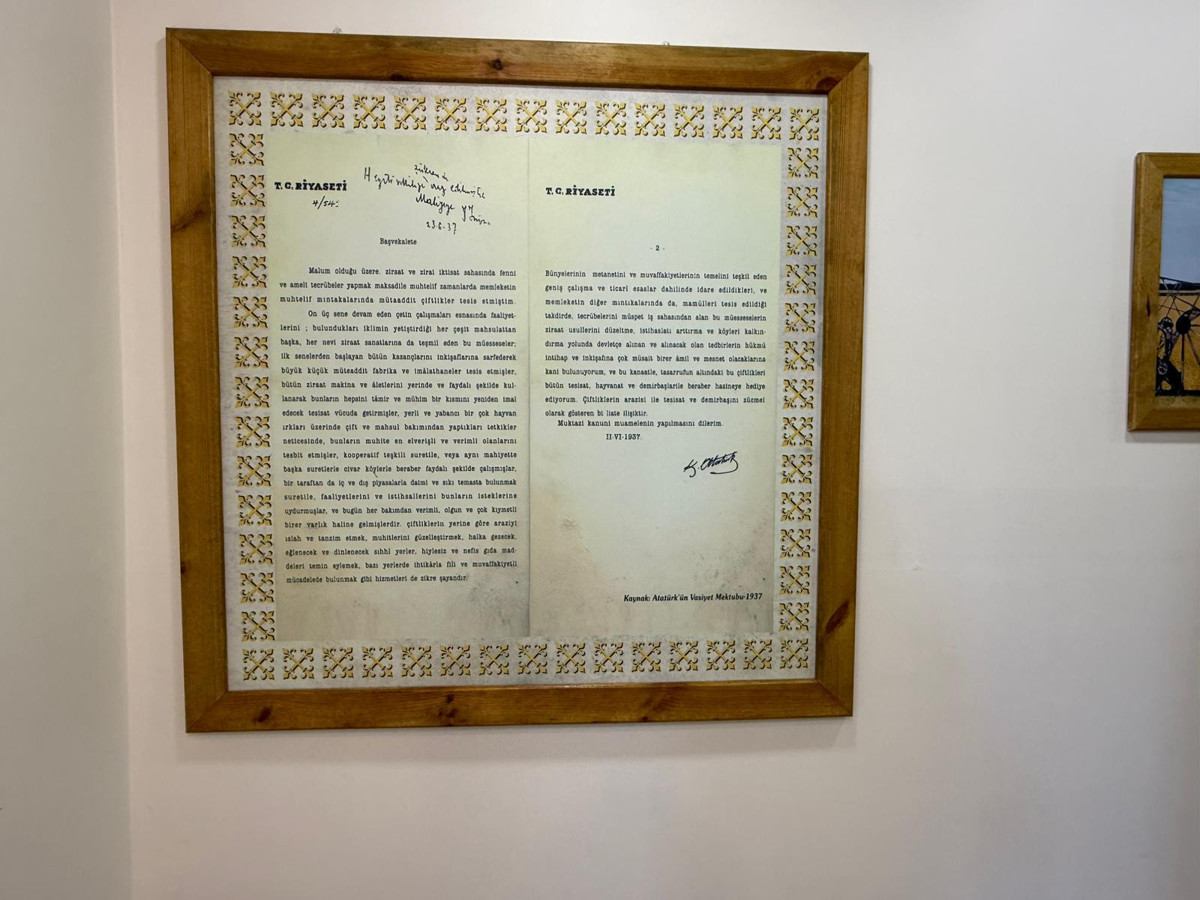 T. C. RİYASETİ
4/545
Maliyeye
23.6.37
Başvekalete
Malum olduğu üzere, ziraat ve zirai iktisat sahasında fenni
ve ameli tecrübeler yapmak maksadile muhtelif zamanlarda memleketin
muhtelif mıntakalarında mütaaddit çiftlikler tesis etmiştim.
On üç sene devam eden çetin çalışmaları esnasında faaliyet-
lerini ; bulundukları iklimin yetiştirdiği her çeşit mahsulattan
başka, her nevi ziraat sanatlarına da teşmil eden bu müesseseler;
ilk senelerden başlayan bütün kazançlarını inkişaflarına sarfederek
büyük küçük müteaddit fabrika ve imâlathaneler tesis etmişler,
bütün ziraat makina ve âletlerini yerinde ve faydalı şekilde kul-
lanarak bunların hepsini tâmir ve mühim bir kısmını yeniden imal
edecek tesisat vücuda getirmişler, yerli ve yabancı bir çok hayvan
ırkları üzerinde çift ve mahsul bakımından yaptıkları tetkikler
neticesinde, bunların muhite en elverişli ve verimli olanlarını
tesbit etmişler, kooperatif teşkili suretile, veya aynı mahiyette
başka suretlerle civar köylerle beraber faydalı şekilde çalışmışlar,
bir taraftan da iç ve dış piyasalarla daimi ve sıkı temasta bulunmak
suretile, faaliyetlerini ve istihsallerini bunların isteklerine
uydurmuşlar, ve bugün her bakımdan verimli, olgun ve çok kıymetli
birer varlık haline gelmişlerdir. çiftliklerin yerine göre araziyi
ıslah ve tanzim etmek, muhitlerini güzelleştirmek, halka gezecek,
eğlenecek ve dinlenecek sıhhî yerler, hiylesiz ve nefis gıda mad-
deleri temin eylemek, bazı yerlerde ihtikârla fili ve muvaffakiyetli
mücadelede bulunmak gibi hizmetleri de zikre şayandır.
T. C. RİYASETİ
- 2 -
Bünyelerinin metanetini ve muvaffakiyetlerinin temelini teşkil eden
geniş çalışma ve ticarî esaslar dahilinde idare edildikleri, ve
memleketin diğer mıntıkalarında da, mamülleri tesis edildiği
takdirde, tecrübelerini müspet iş sahasından alan bu müesseselerin
ziraat usullerini düzeltme, istihsalatı arttırma ve köyleri kalkın-
dırma yolunda devletçe alınan ve alınacak olan tedbirlerin hükmü
intihap ve inkişafına çok müsait birer âmil ve mesnet olacaklarına
kani bulunuyorum, ve bu kanaatle, tasarrufun altındaki bu çiftlikleri
bütün tesisat, hayvanat ve demirbaşlarile beraber hazineye hediye
ediyorum. Çiftliklerin arazisi ile tesisat ve demirbaşını zücmel
olarak gösteren bi liste ilişiktir.
Muktazi kanuni muamelenin yapılmasını dilerim.
II-VI-1937.
K. Atatürk
Kaynak: Atatürk'ün Vasiyet Mektubu-1937